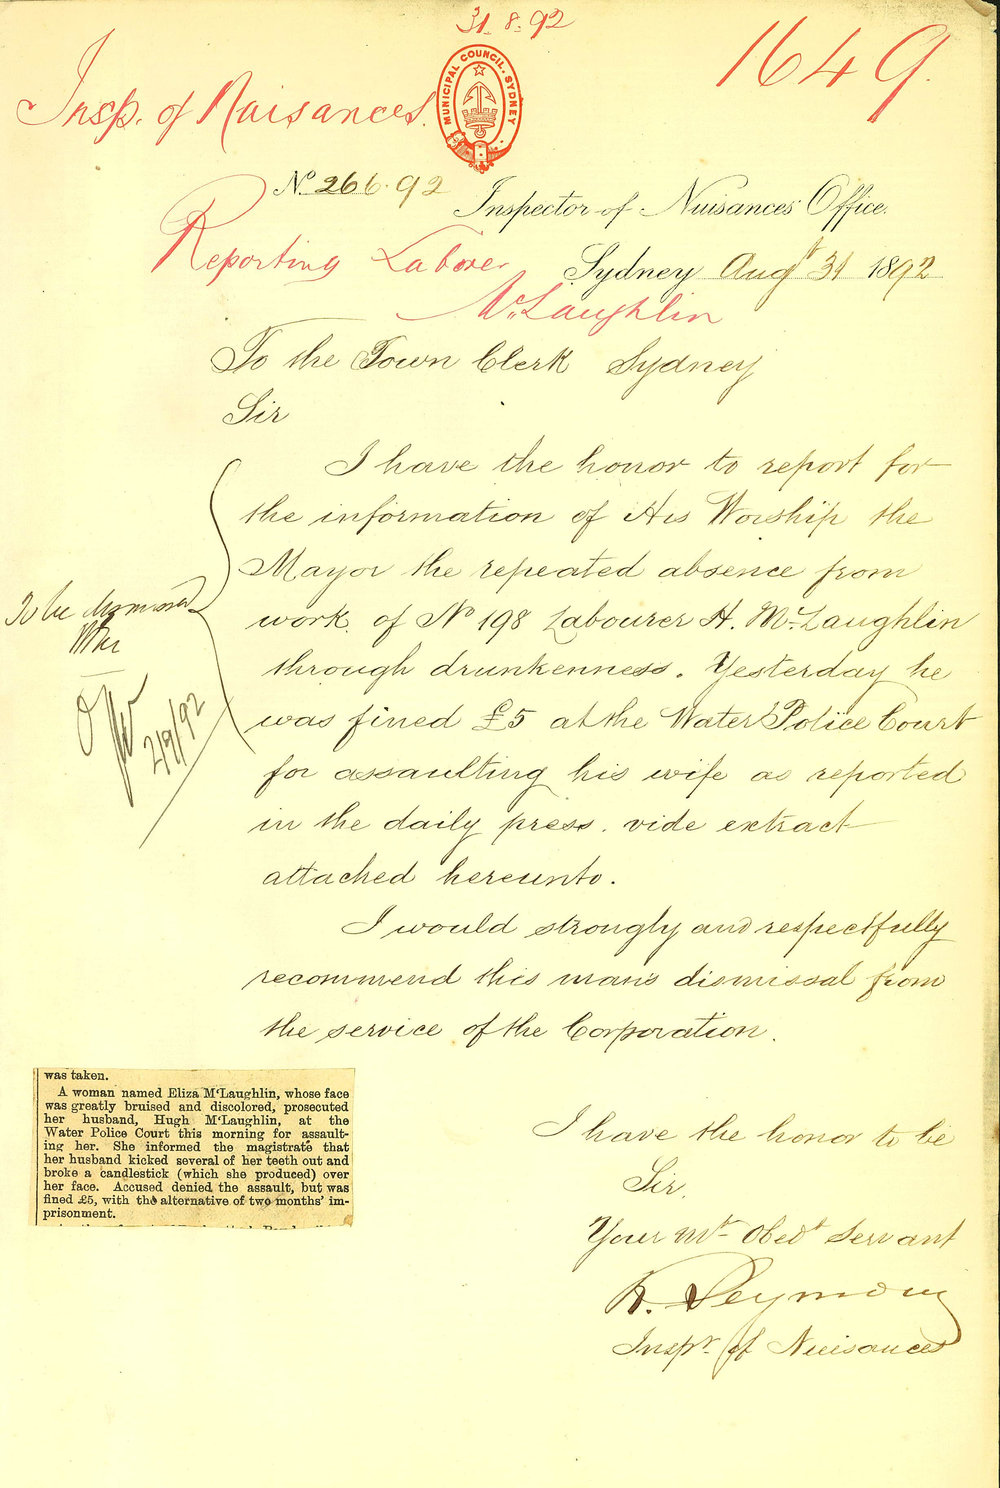 31. 8. 92
1649.
Insp. of Nuisances.
MUNICIPAL COUNCIL. SYDNEY
No. 266.92
Inspector of Nuisances' Office.
Reporting Laborer
McLaughlin
Sydney Augt 31 1892
To the Town Clerk Sydney
Sir
I have the honor to report for
the information of His Worship the
Mayor the repeated absence from
work of No 198 Labourer H. McLaughlin
through drunkenness. Yesterday he
was fined £5 at the Water Police Court
for assaulting his wife as reported
in the daily press. vide extract
attached hereunto.
I would strongly and respectfully
recommend this man's dismissal from
the service of the Corporation.
To be dismissed
2/9/92
was taken.
A woman named Eliza M'Laughlin, whose face
was greatly bruised and discolored, prosecuted
her husband, Hugh M'Laughlin, at the
Water Police Court this morning for assault-
ing her. She informed the magistrate that
her husband kicked several of her teeth out and
broke a candlestick (which she produced) over
her face. Accused denied the assault, but was
fined £5, with the alternative of two months' im-
prisonment.
I have the honor to be
Sir.
Your Mt Obedt Servant
R. Seymour
Inspr of Nuisances